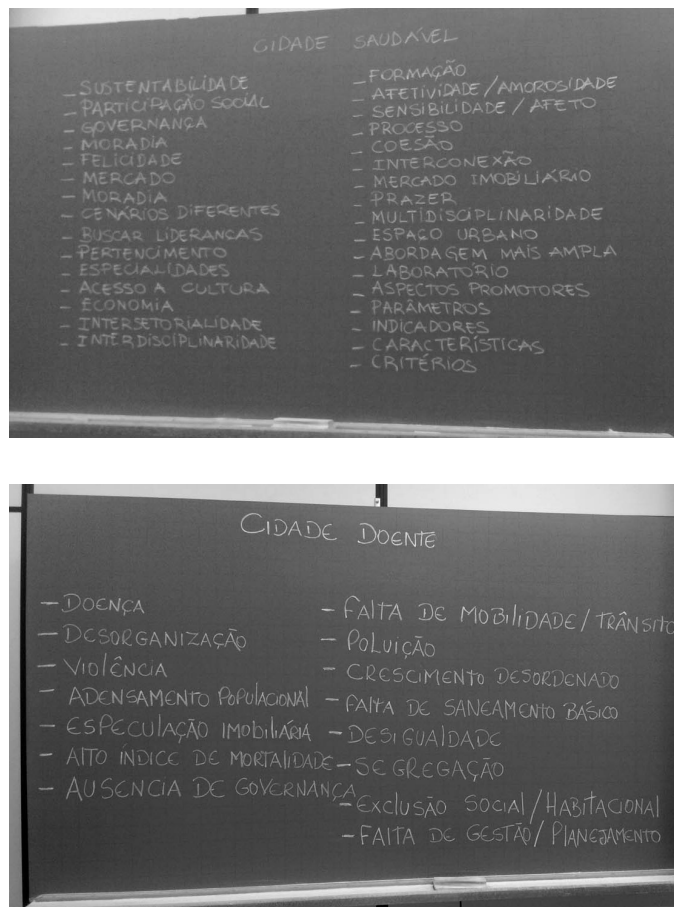 CIDADE SAUDÁVEL
- SUSTENTABILIDADE
- PARTICIPAÇÃO SOCIAL
- GOVERNANÇA
- MORADIA
- FELICIDADE
- MERCADO
- MORADIA
- CENÁRIOS DIFERENTES
- BUSCAR LIDERANCAS
- PERTENCIMENTO
- ESPECIALIDADES
- ACESSO A CULTURA
- ECONOMIA
- INTERSETORIALIDADE
- INTERDISCIPLINARIDADE
- FORMAÇÃO
- AFETIVIDADE / AMOROSIDADE
- SENSIBILIDADE / AFETO
- PROCESSO
- COESÃO
- INTERCONEXÃO
- MERCADO IMOBILIÁRIO
- PRAZER
- MULTIDISCIPLINARIDADE
- ESPAÇO URBANO
- ABORDAGEM MAIS AMPLA
- LABORATÓRIO
- ASPECTOS PROMOTORES
- PARÂMETROS
- INDICADORES
- CARACTERÍSTICAS
- CRITÉRIOS
CIDADE DOENTE
- DOENÇA
- DESORGANIZAÇÃO
- VIOLÊNCIA
- ADENSAMENTO POPULACIONAL
- ESPECULAÇÃO IMOBILIÁRIA
- ALTO ÍNDICE DE MORTALIDADE
- AUSENCIA DE GOVERNANÇA
- FALTA DE MOBILIDADE / TRÂNSITO
- POLUIÇÃO
- CRESCIMENTO DESORDENADO
- FALTA DE SANEAMENTO BÁSICO
- DESIGUALDADE
- SEGREGAÇÃO
- EXCLUSÃO SOCIAL / HABITACIONAL
- FALTA DE GESTÃO / PLANEJAMENTO